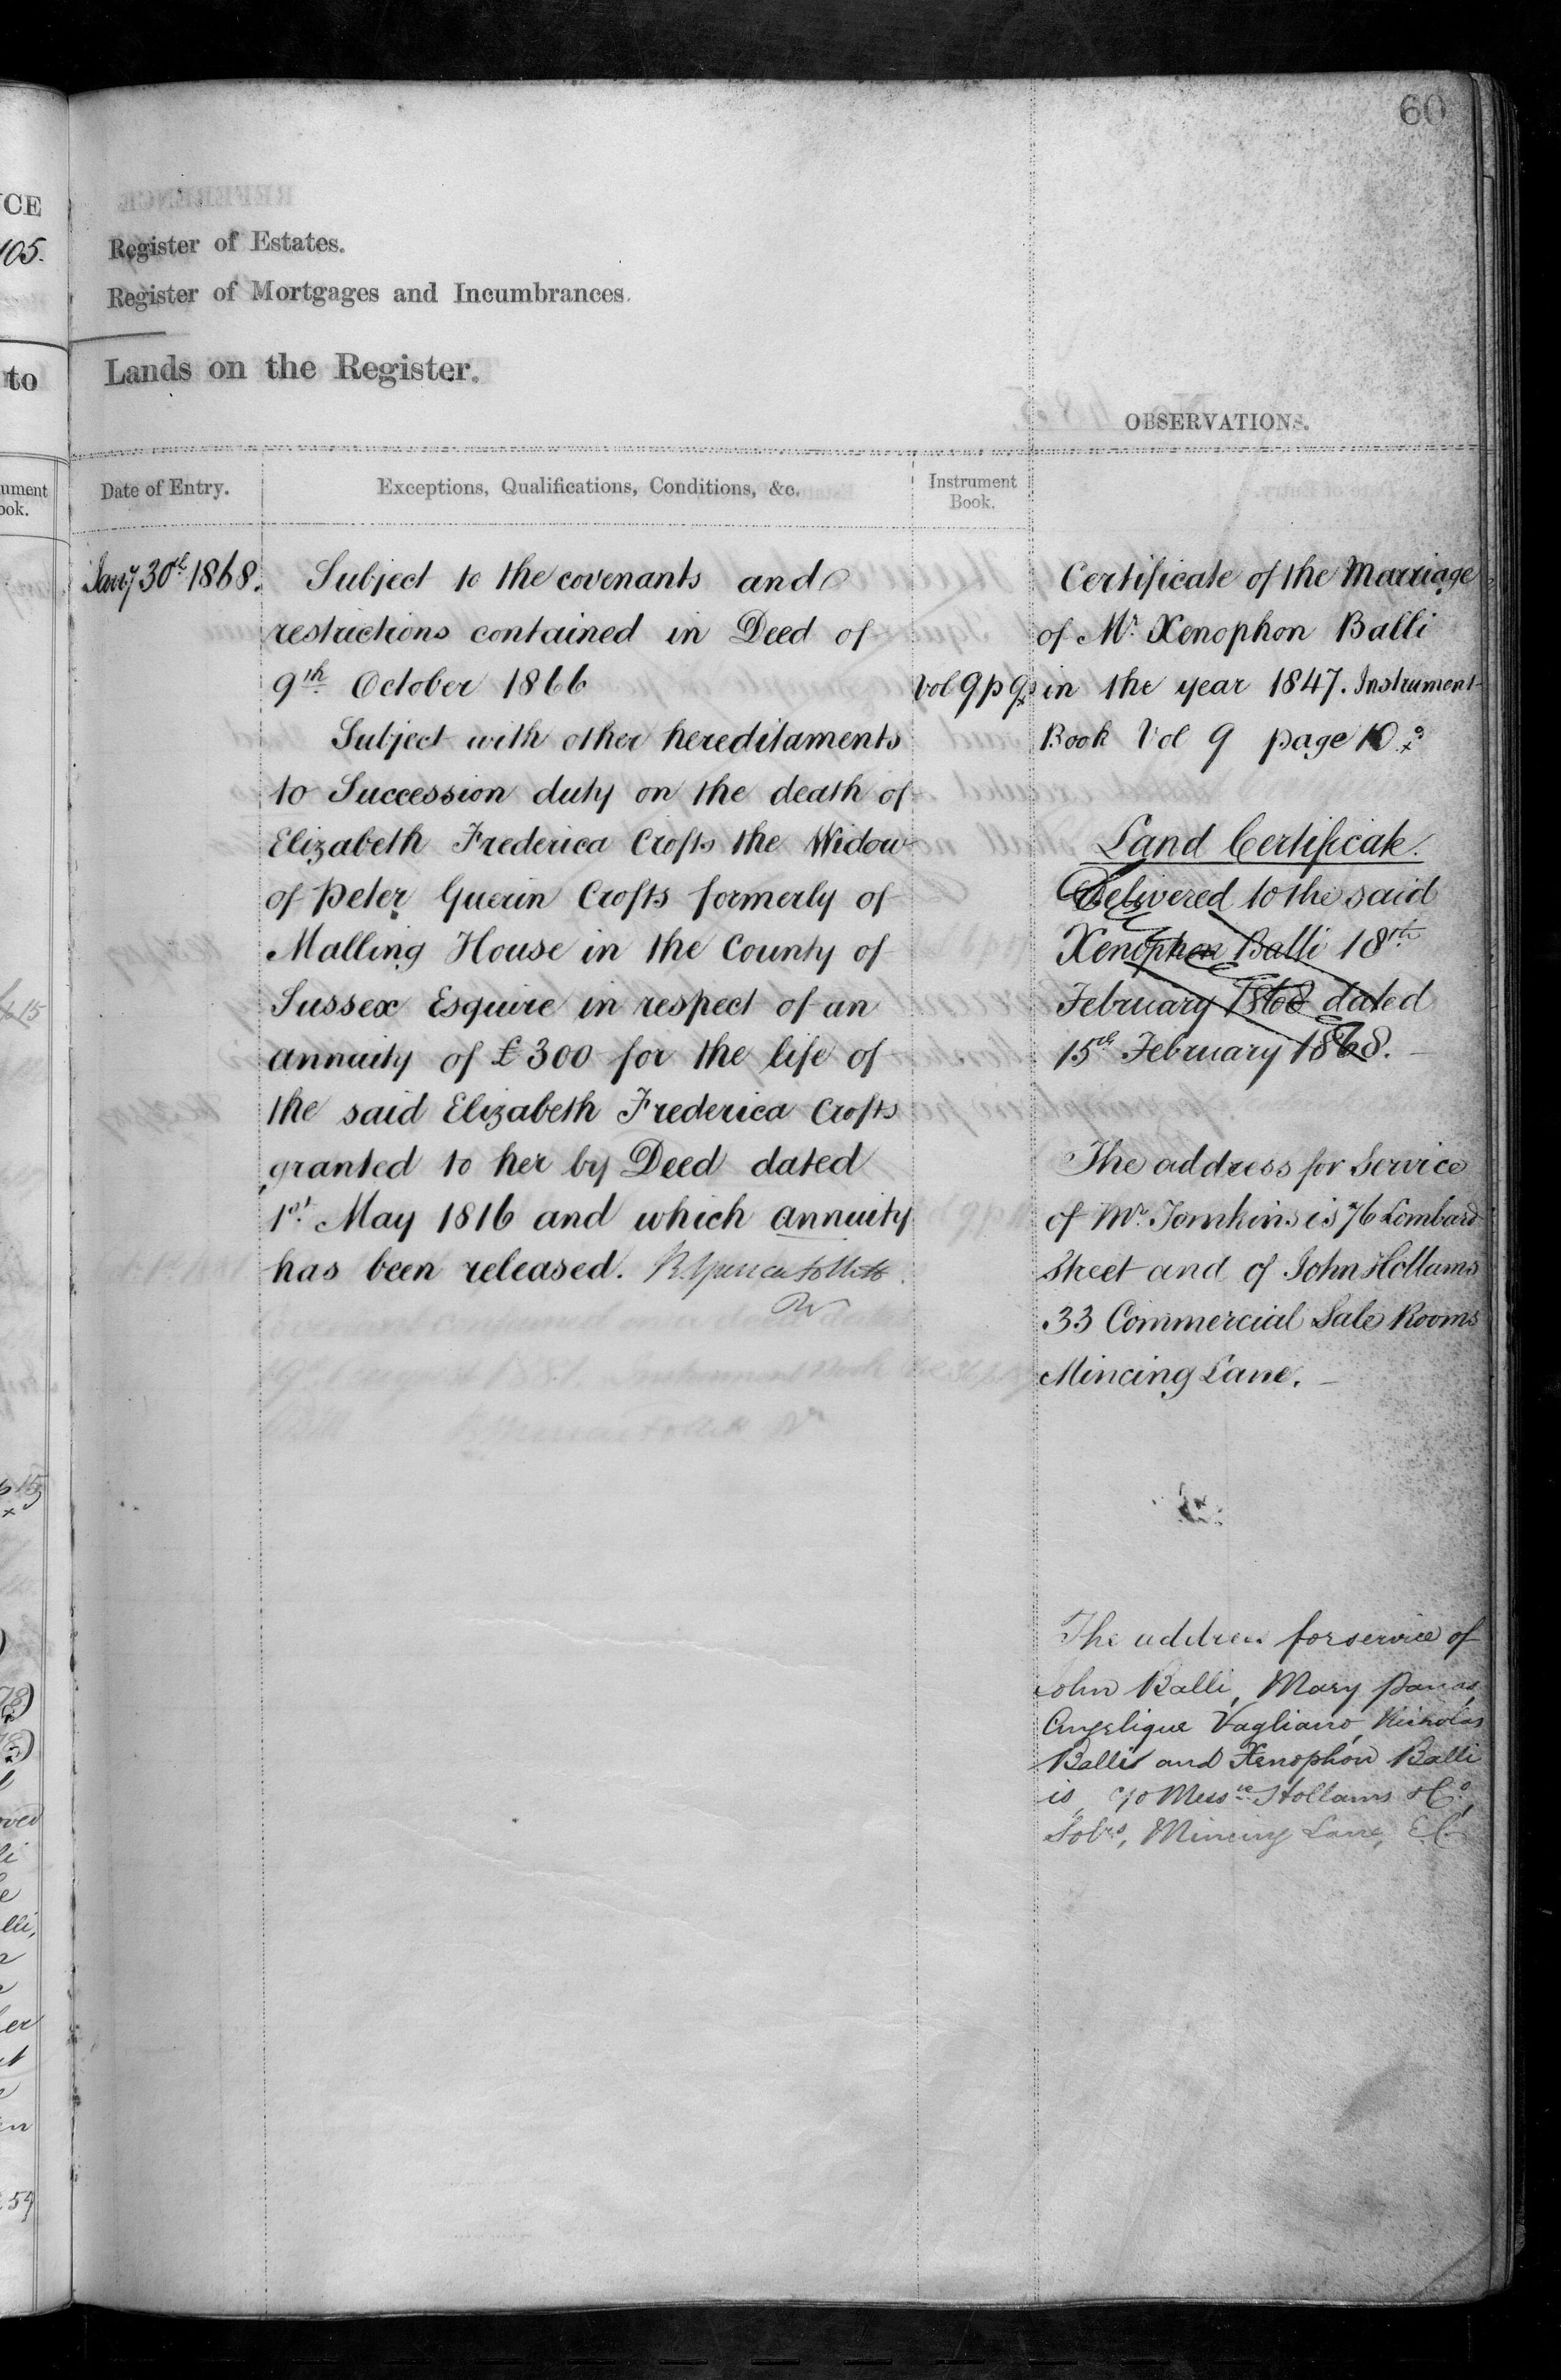 60
CE
105.
to
Register of Estates.
Register of Mortgages and Incumbrances.
Lands on the Register.
OBSERVATIONS.
Date of Entry.
Exceptions, Qualifications, Conditions, &c.
Instrument
Book.
Jany 30th 1868.
Subject to the covenants and
restrictions contained in Deed of
9th October 1866
Vol 9 p 9
Subject with other hereditaments
to Succession duty on the death of
Elizabeth Frederica Crofts the Widow
of Peter Guerin Crofts formerly of
Malling House in the County of
Sussex Esquire in respect of an
annuity of £300 for the life of
the said Elizabeth Frederica Crofts
granted to her by Deed dated
1st May 1816 and which annuity
has been released.
Certificate of the Marriage
of Mr Xenophon Balli
in the year 1847. Instrument
Book Vol 9 page 10
Land Certificate.
Delivered to the said
Xenophon Balli 18th
February 1868 dated
15th February 1868.
The address for Service
of Mr Tomkins is 76 Lombard
Street and of John Hollams
33 Commercial Sale Rooms
Mincing Lane.
The address for service of
John Balli, Mary
Angelique Vagliano, Nicholas
Balli and Xenophon Balli
is, c/o Messrs Hollams & Co,
Solrs, Mincing Lane, E.C.